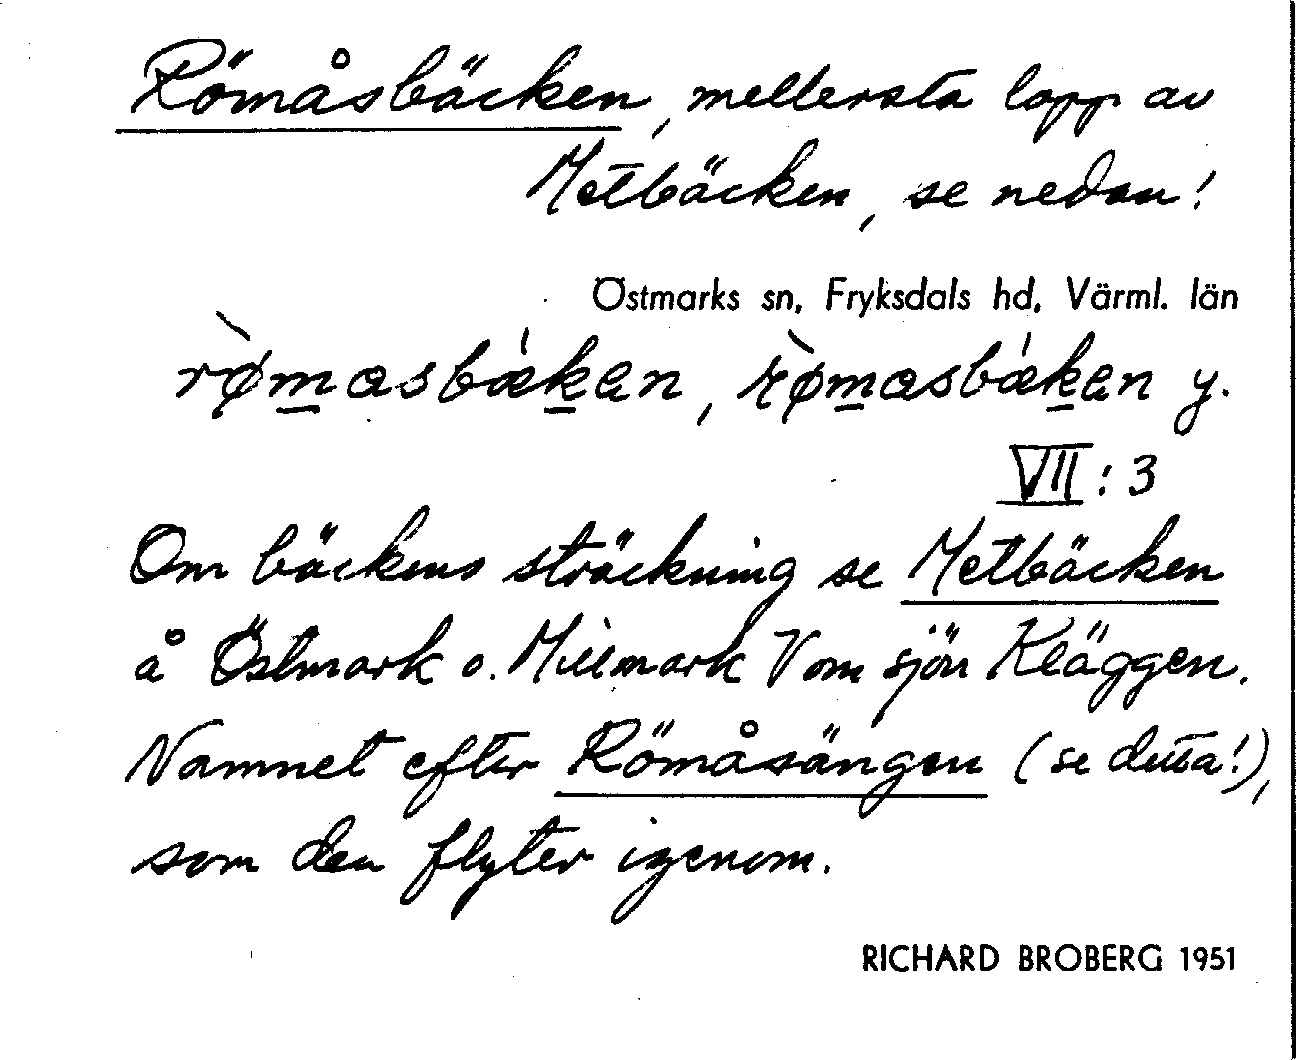 Römåsbäcken, mellersta lopp av
Metbäcken, se nedan!
Östmarks sn, Fryksdals hd, Värml. län
rø̀masbǽkan, rø̀masbǽkan y.
VII:3
Om bäckens sträckning se Metbäcken
å Östmark o. Millmark V om sjön Kläggen.
Namnet efter Römåsängen (se detta!),
som den flyter igenom.
RICHARD BROBERG 1951